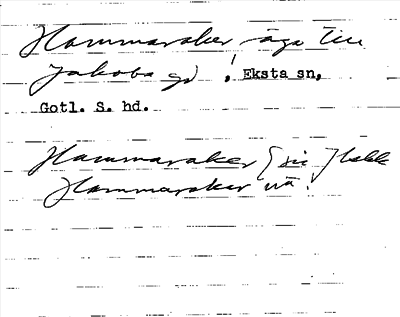 Hammaraker äga till
Jakobs gd, Eksta sn,
Gotl. S. hd.
Hammaraker [sic]
Hammaraker